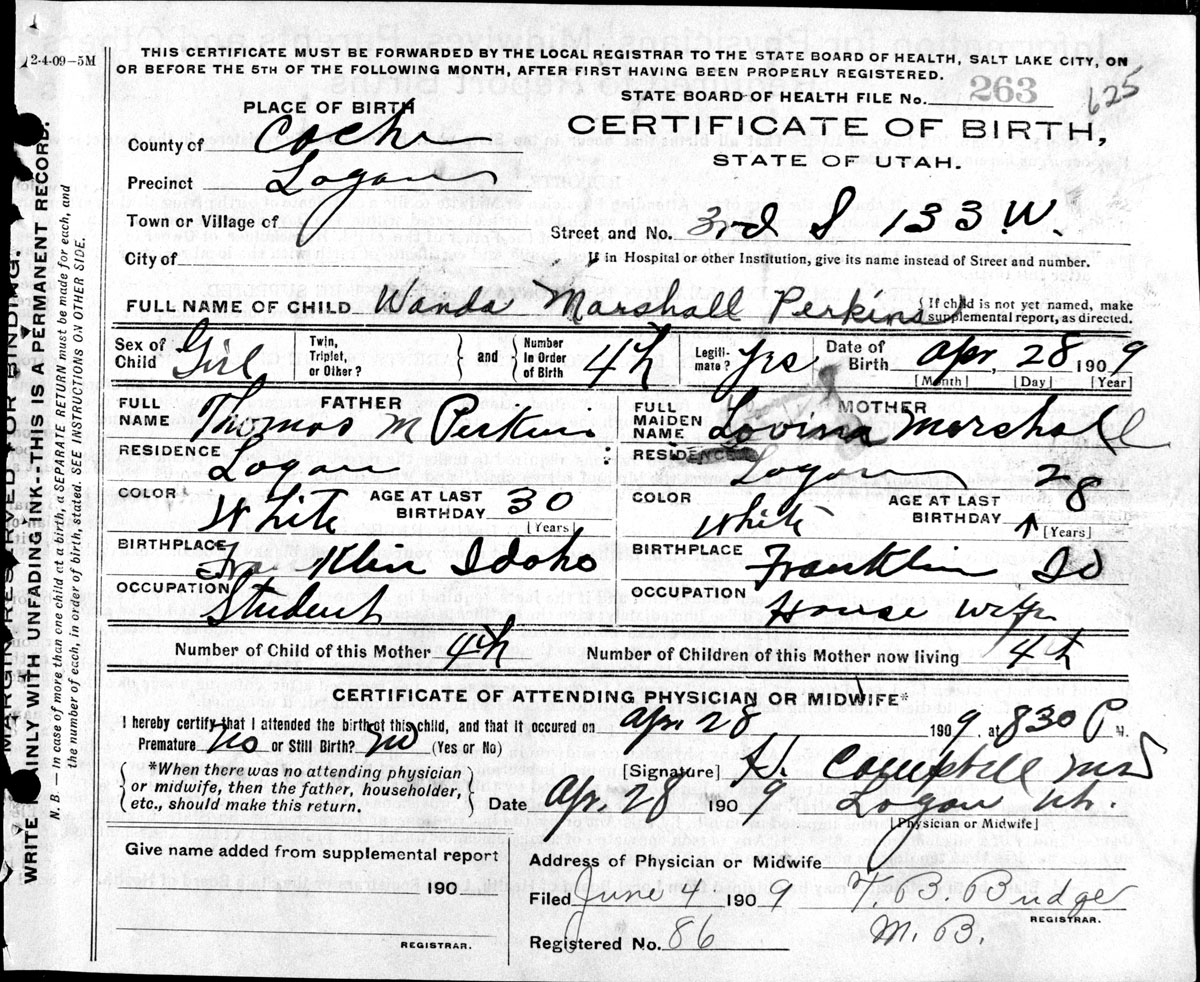 2-4-09-5M
THIS CERTIFICATE MUST BE FORWARDED BY THE LOCAL REGISTRAR TO THE STATE BOARD OF HEALTH, SALT LAKE CITY, ON
OR BEFORE THE 5TH OF THE FOLLOWING MONTH, AFTER FIRST HAVING BEEN PROPERLY REGISTERED.
STATE BOARD OF HEALTH FILE No. 263 625
PLACE OF BIRTH
CERTIFICATE OF BIRTH,
STATE OF UTAH.
County of Cache
Precinct Logan
Town or Village of
Street and No. 3rd S 133 W.
City of
If in Hospital or other Institution, give its name instead of Street and number.
FULL NAME OF CHILD Wanda Marshall Perkins {If child is not yet named, make supplemental report, as directed.
Sex of Child Girl Twin, Triplet, or Other? } and { Number in Order of Birth 4th Legitimate? Yes Date of Birth Apr, 28 1909
[Month] [Day] [Year]
FATHER MOTHER
FULL NAME Thomas M Perkins FULL MAIDEN NAME Lovina Marshall
RESIDENCE Logan RESIDENCE Logan
COLOR White AGE AT LAST BIRTHDAY 30 [Years] COLOR White AGE AT LAST BIRTHDAY 28 [Years]
BIRTHPLACE Franklin Idaho BIRTHPLACE Franklin Id
OCCUPATION Student OCCUPATION House Wife
Number of Child of this Mother 4th Number of Children of this Mother now living 4th
CERTIFICATE OF ATTENDING PHYSICIAN OR MIDWIFE*
I hereby certify that I attended the birth of this child, and that it occured on Apr 28 1909, at 830 P M.
Premature No or Still Birth? No (Yes or No)
*When there was no attending physician or midwife, then the father, householder, etc., should make this return.
[Signature] H. Campbell MD
Date Apr. 28 1909 Logan Ut.
[Physician or Midwife]
Give name added from supplemental report
Address of Physician or Midwife
190
Filed June 4 1909 T. B. Budge
REGISTRAR.
M. B.
REGISTRAR.
Registered No. 86
MARGIN RESERVED FOR BINDING.
WRITE PLAINLY WITH UNFADING INK--THIS IS A PERMANENT RECORD.
N. B.—In case of more than one child at a birth, a SEPARATE RETURN must be made for each, and
the number of each, in order of birth, stated. SEE INSTRUCTIONS ON OTHER SIDE.